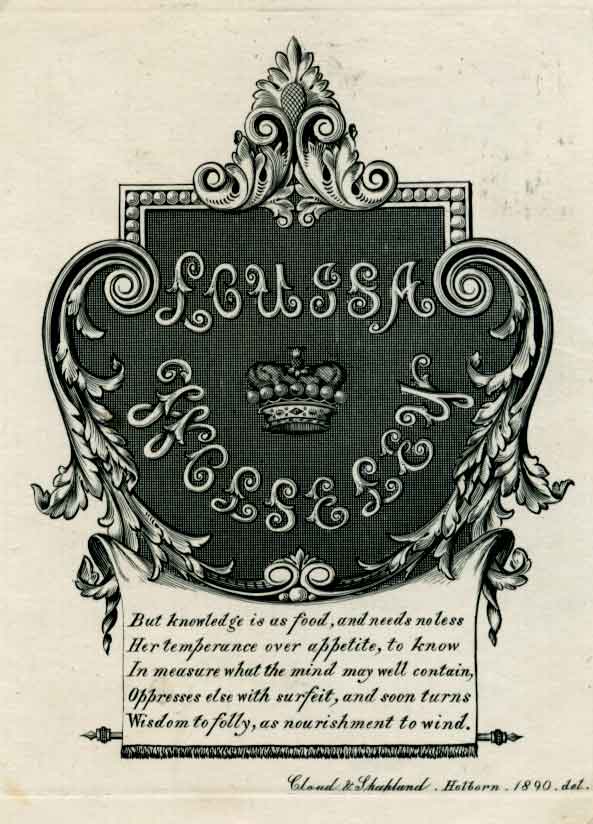 LOUISA
WOLSELEY
But knowledge is as food, and needs no less
Her temperance over appetite, to know
In measure what the mind may well contain,
Oppresses else with surfeit, and soon turns
Wisdom to folly, as nourishment to wind.
Cloud & Shapland . Holborn . 1890 . del.